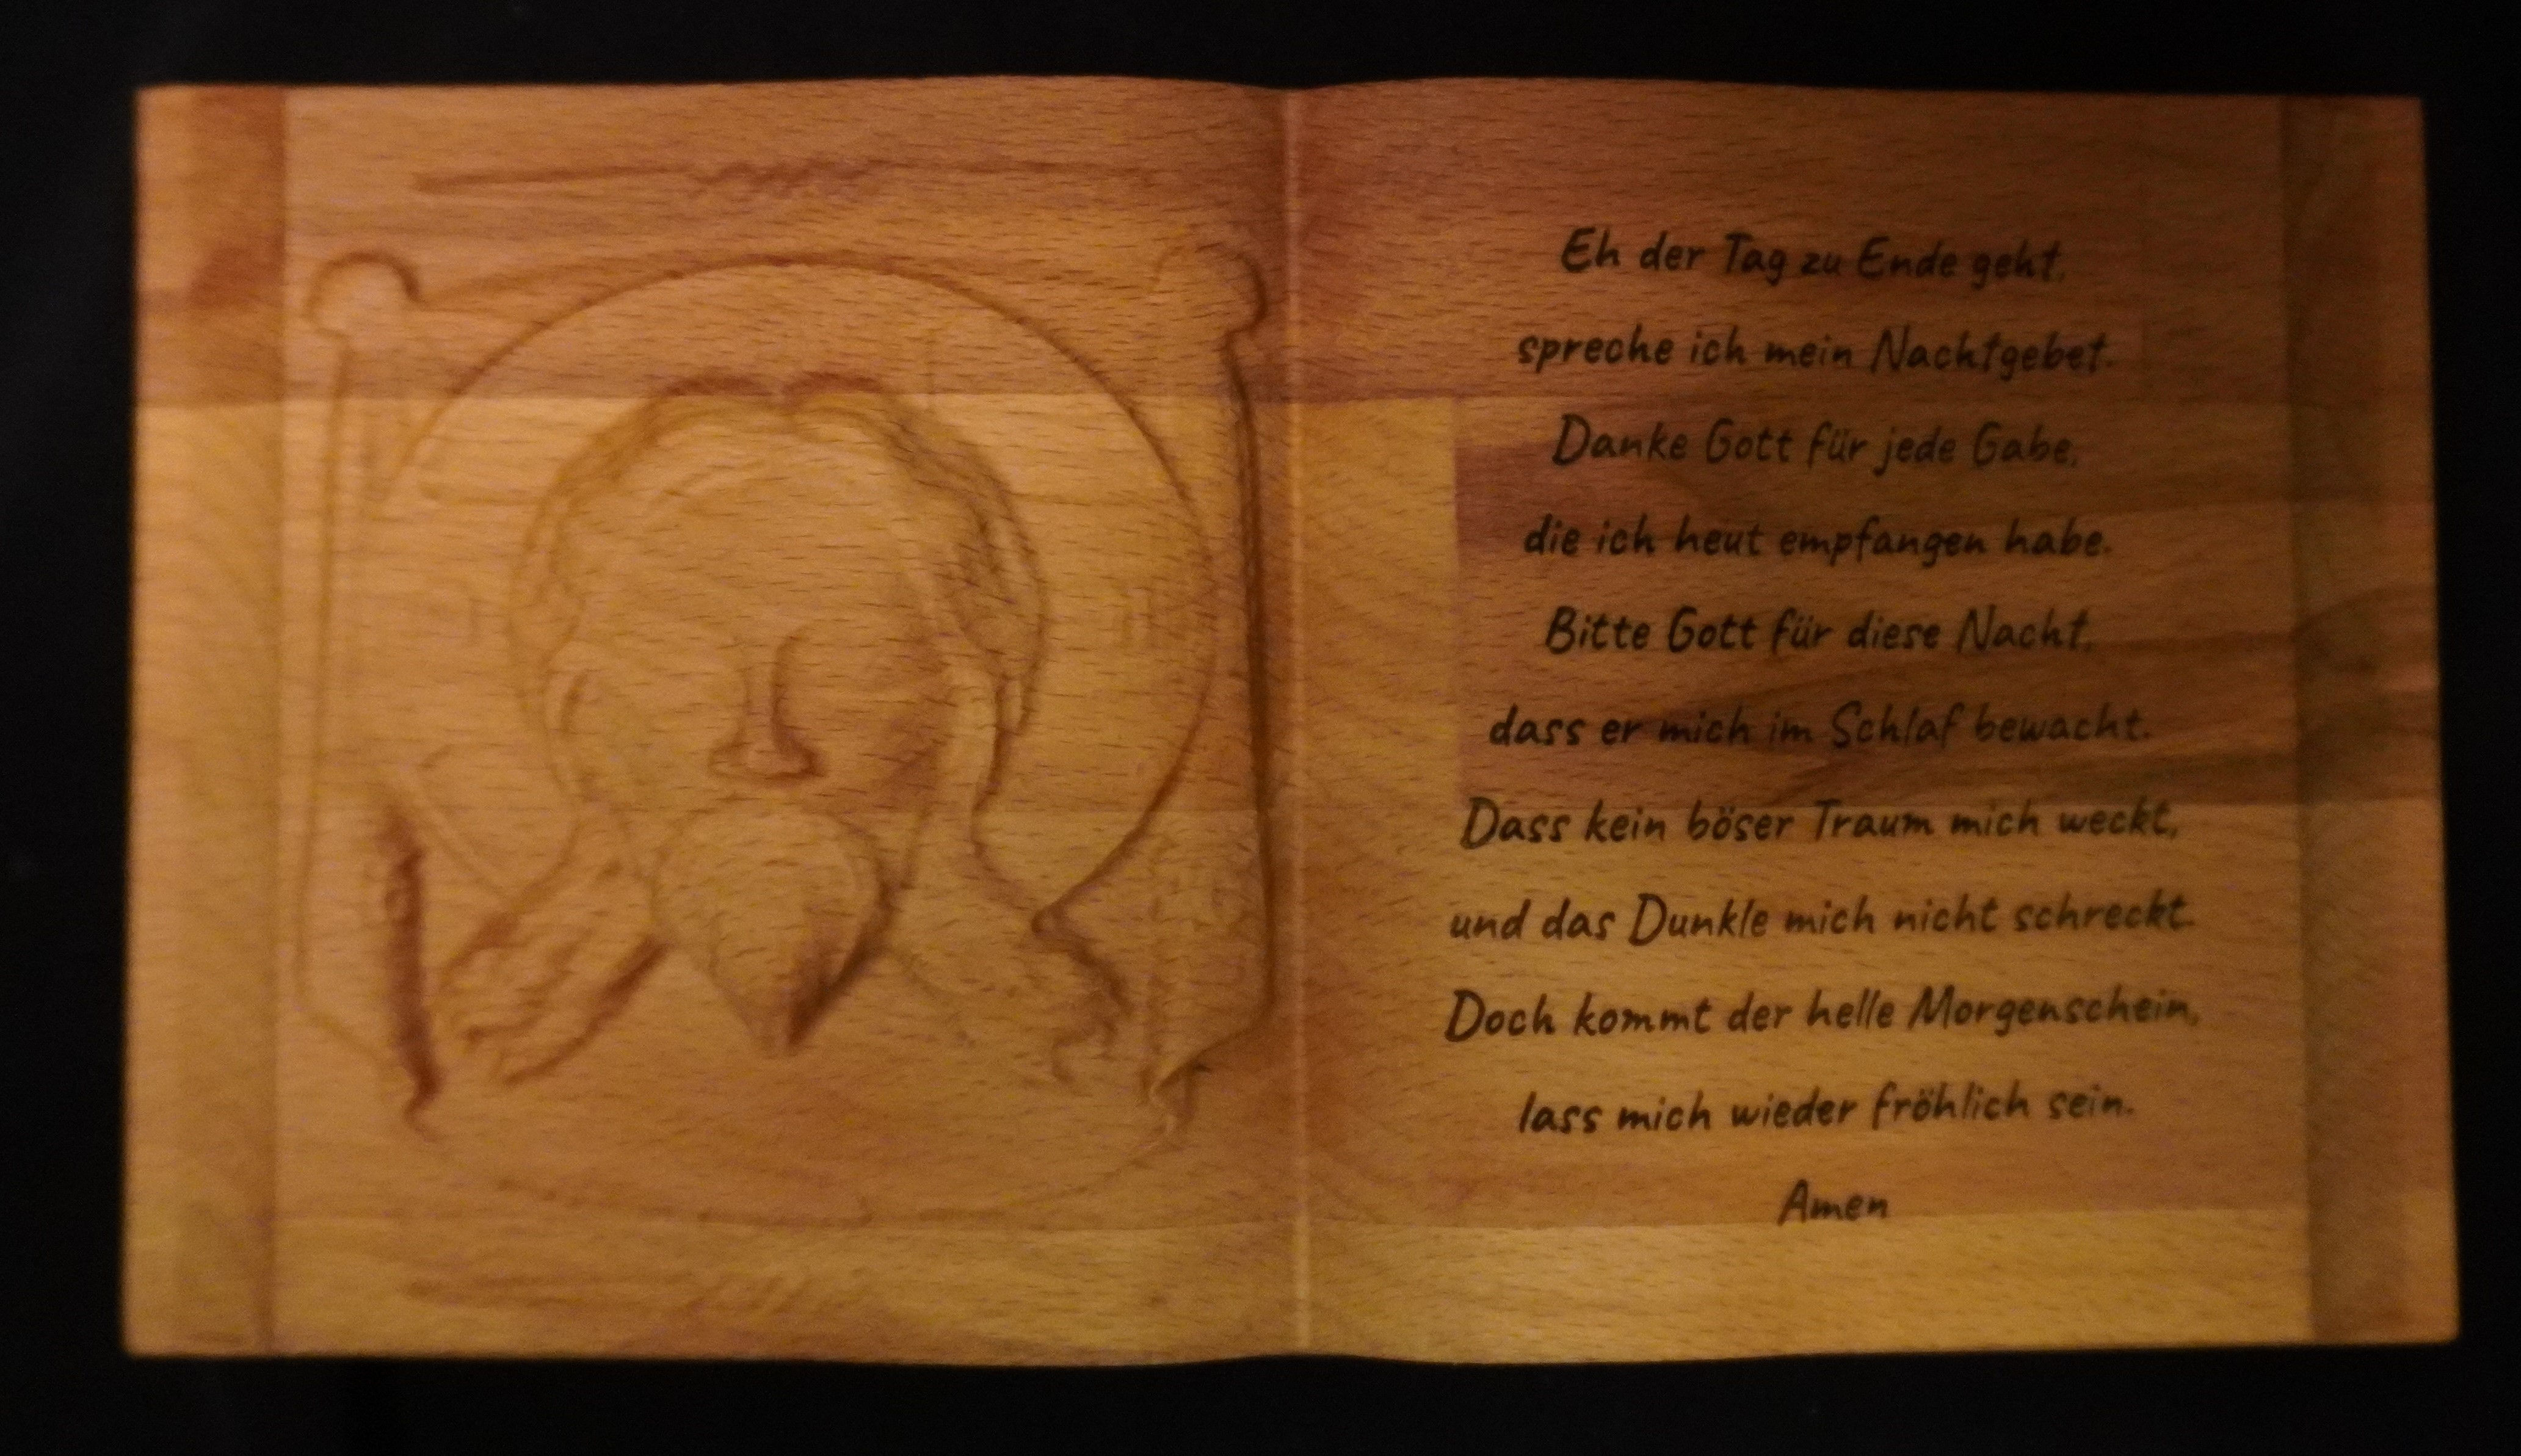 Eh der Tag zu Ende geht,
spreche ich mein Nachtgebet.
Danke Gott für jede Gabe,
die ich heut empfangen habe.
Bitte Gott für diese Nacht,
dass er mich im Schlaf bewacht.
Dass kein böser Traum mich weckt,
und das Dunkle mich nicht schreckt.
Doch kommt der helle Morgenschein,
lass mich wieder fröhlich sein.
Amen